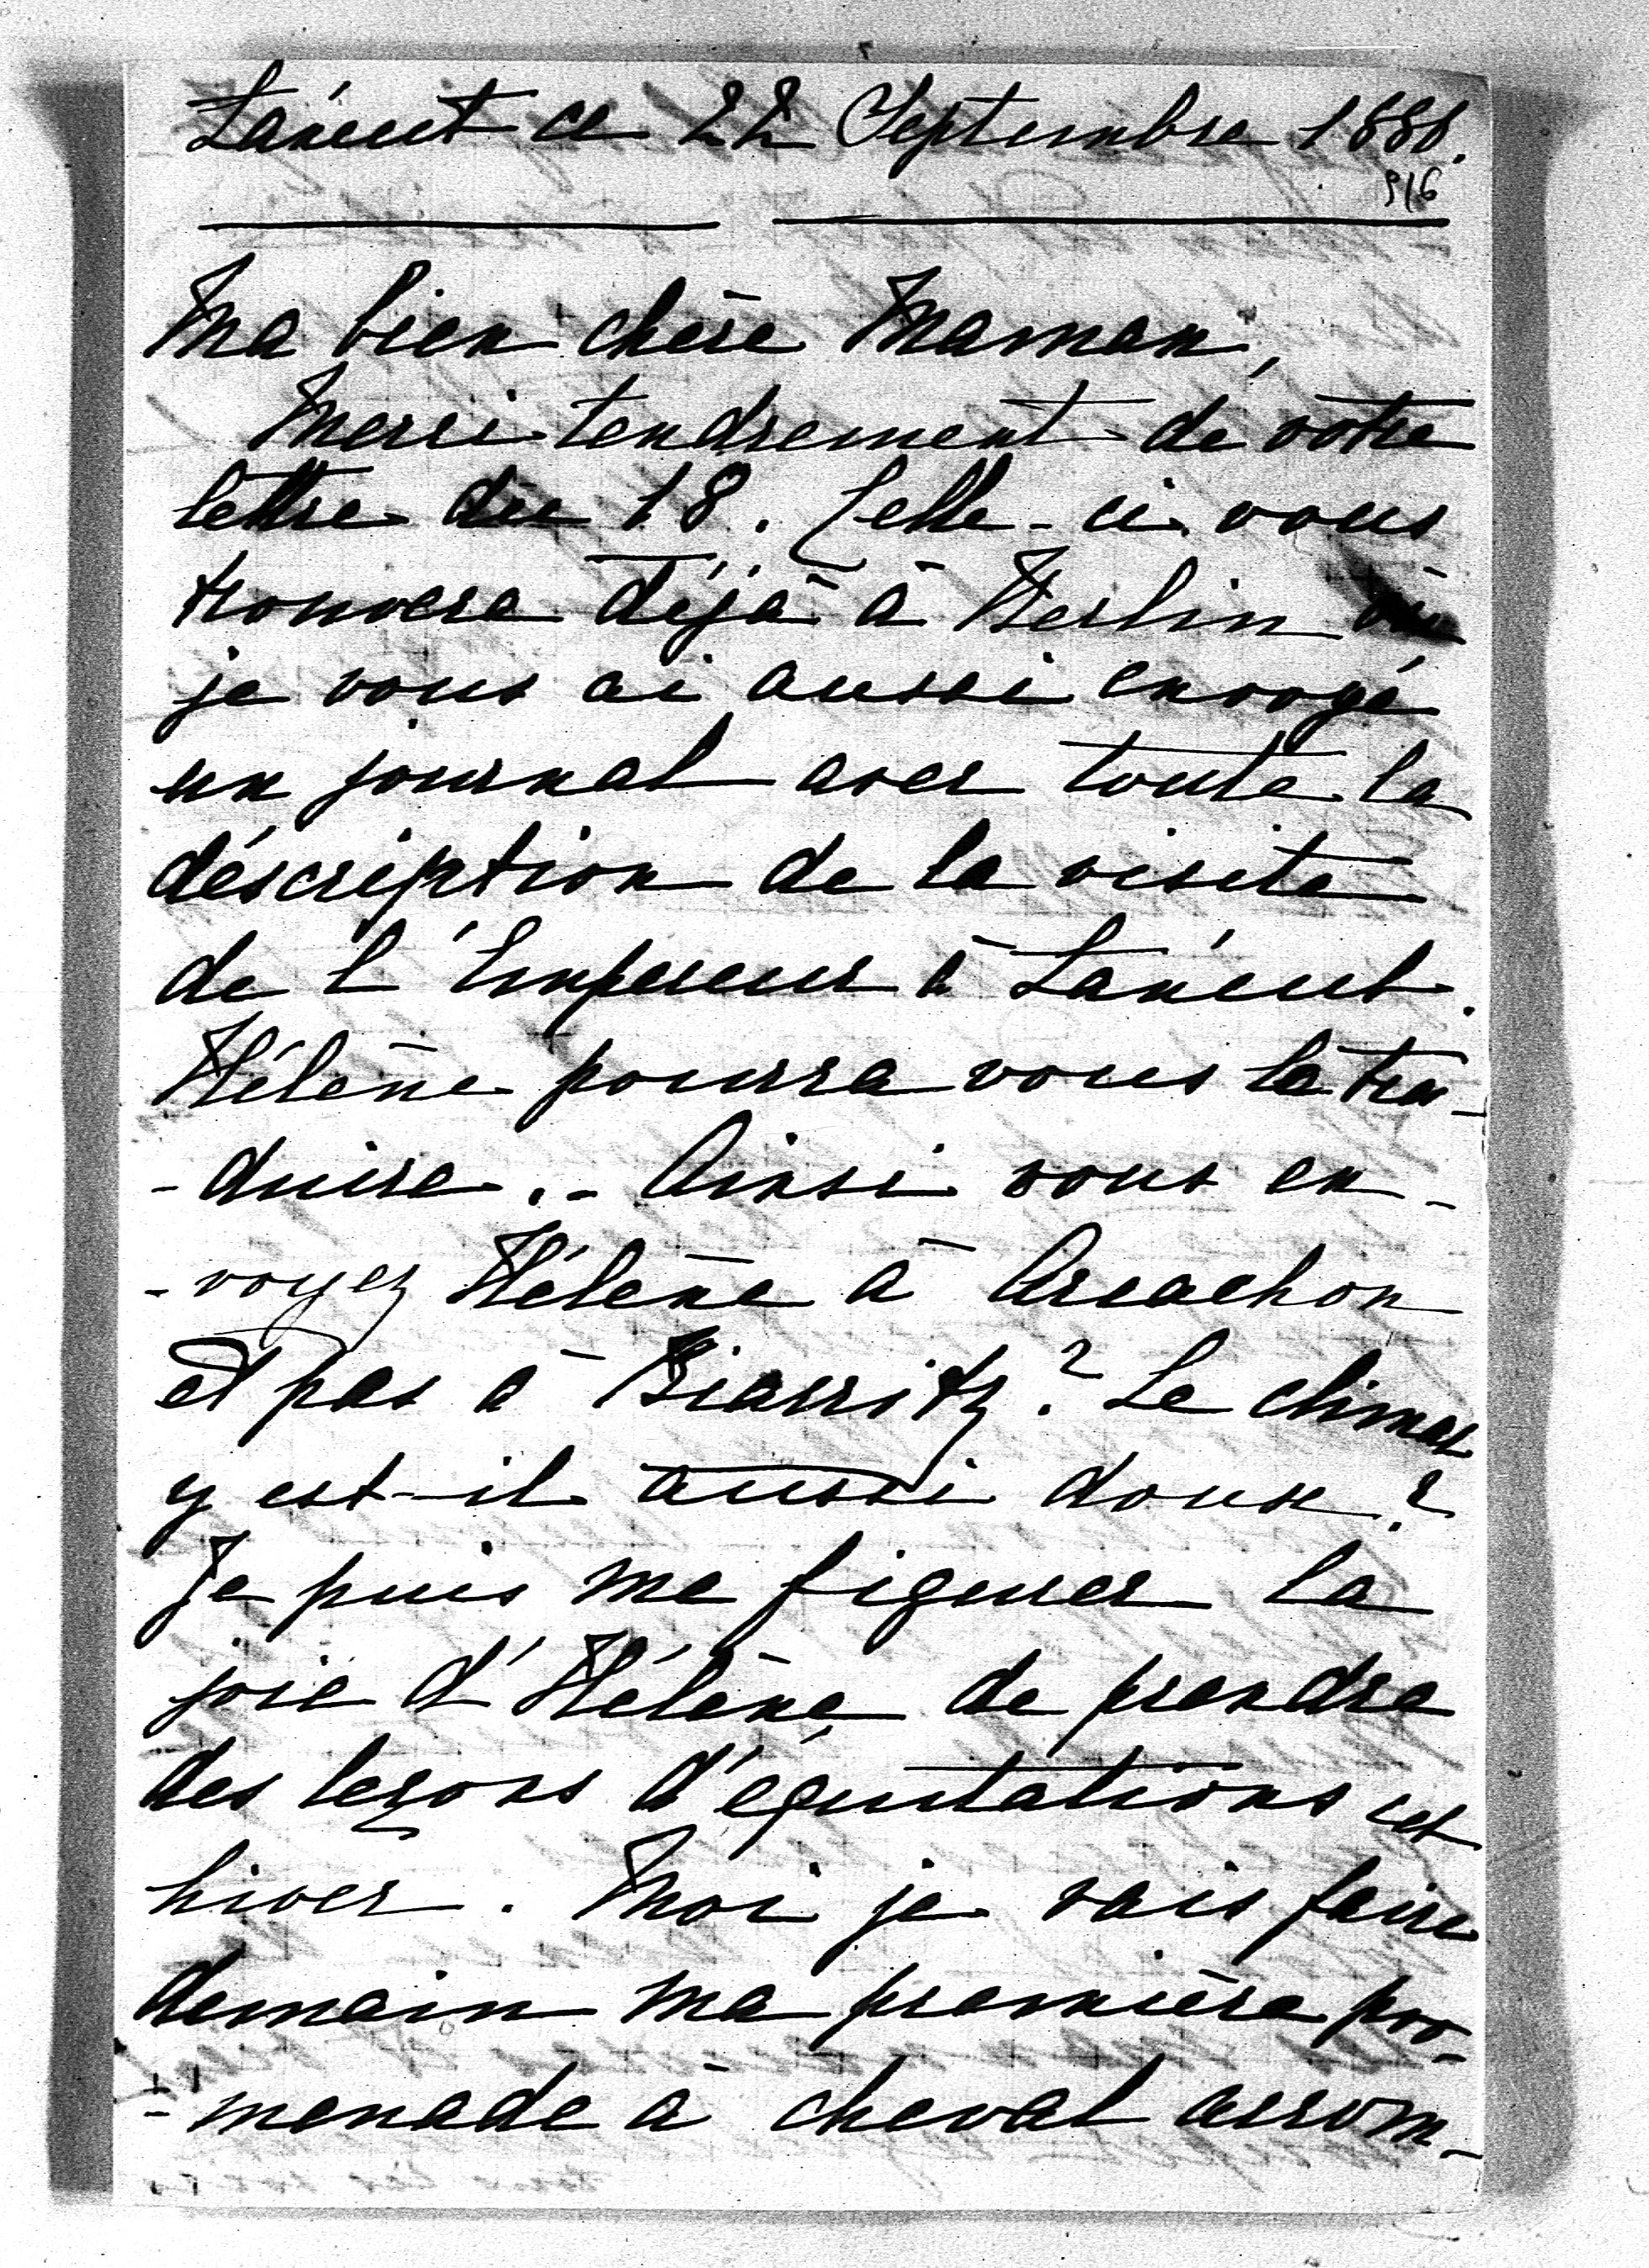 Łańcut ce 22 Septembre 1888.
916
Ma bien chère Maman,
Merci tendrement de votre
lettre du 18. Celle-ci vous
trouvera déjà à Berlin où
je vous ai aussi envoyé
un journal avec toute la
déscription de la visite
de l'Empereur à Łańcut.
Hélène pourra vous le tra-
-duire.- Ainsi vous en-
-voyez Hélène à Arcachon
et pas à Biarritz? Le climat
y est-il aussi doux?
Je puis me figurer la
joie d'Hélène de prendre
des leçons d'équitations cet
hiver. Moi je vais faire
demain ma première pro-
-menade à cheval accom-